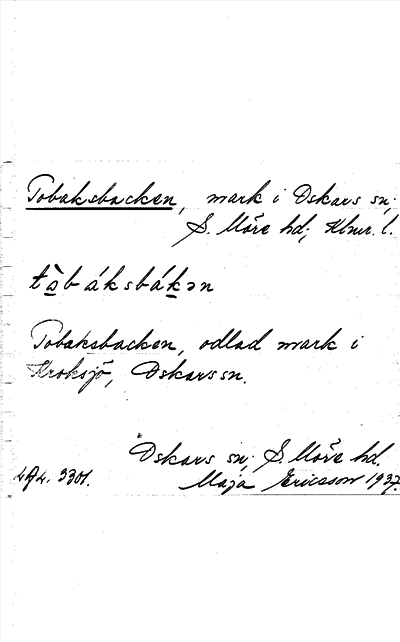 Tobaksbacken, mark i Oskars sn;
S. Möre hd; Klmr. l.
tòbáksbákən
Tobaksbacken, odlad mark i
Kroksjö, Oskars sn.
Oskars sn; S. Möre hd.
3301. Maja Ericsson 1937.